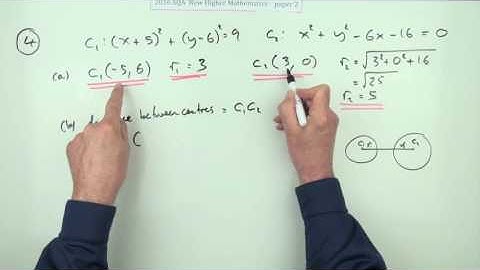 2016 SQA New Higher Mathematics paper 2
④ C₁: (x+5)² + (y-6)² = 9 C₂: x² + y² - 6x - 16 = 0
(a) C₁(-5, 6) r₁ = 3 C₂(3, 0) r₂ = √3²+0²+16
= √25
r₂ = 5
(b) between centres = C₁C₂
(